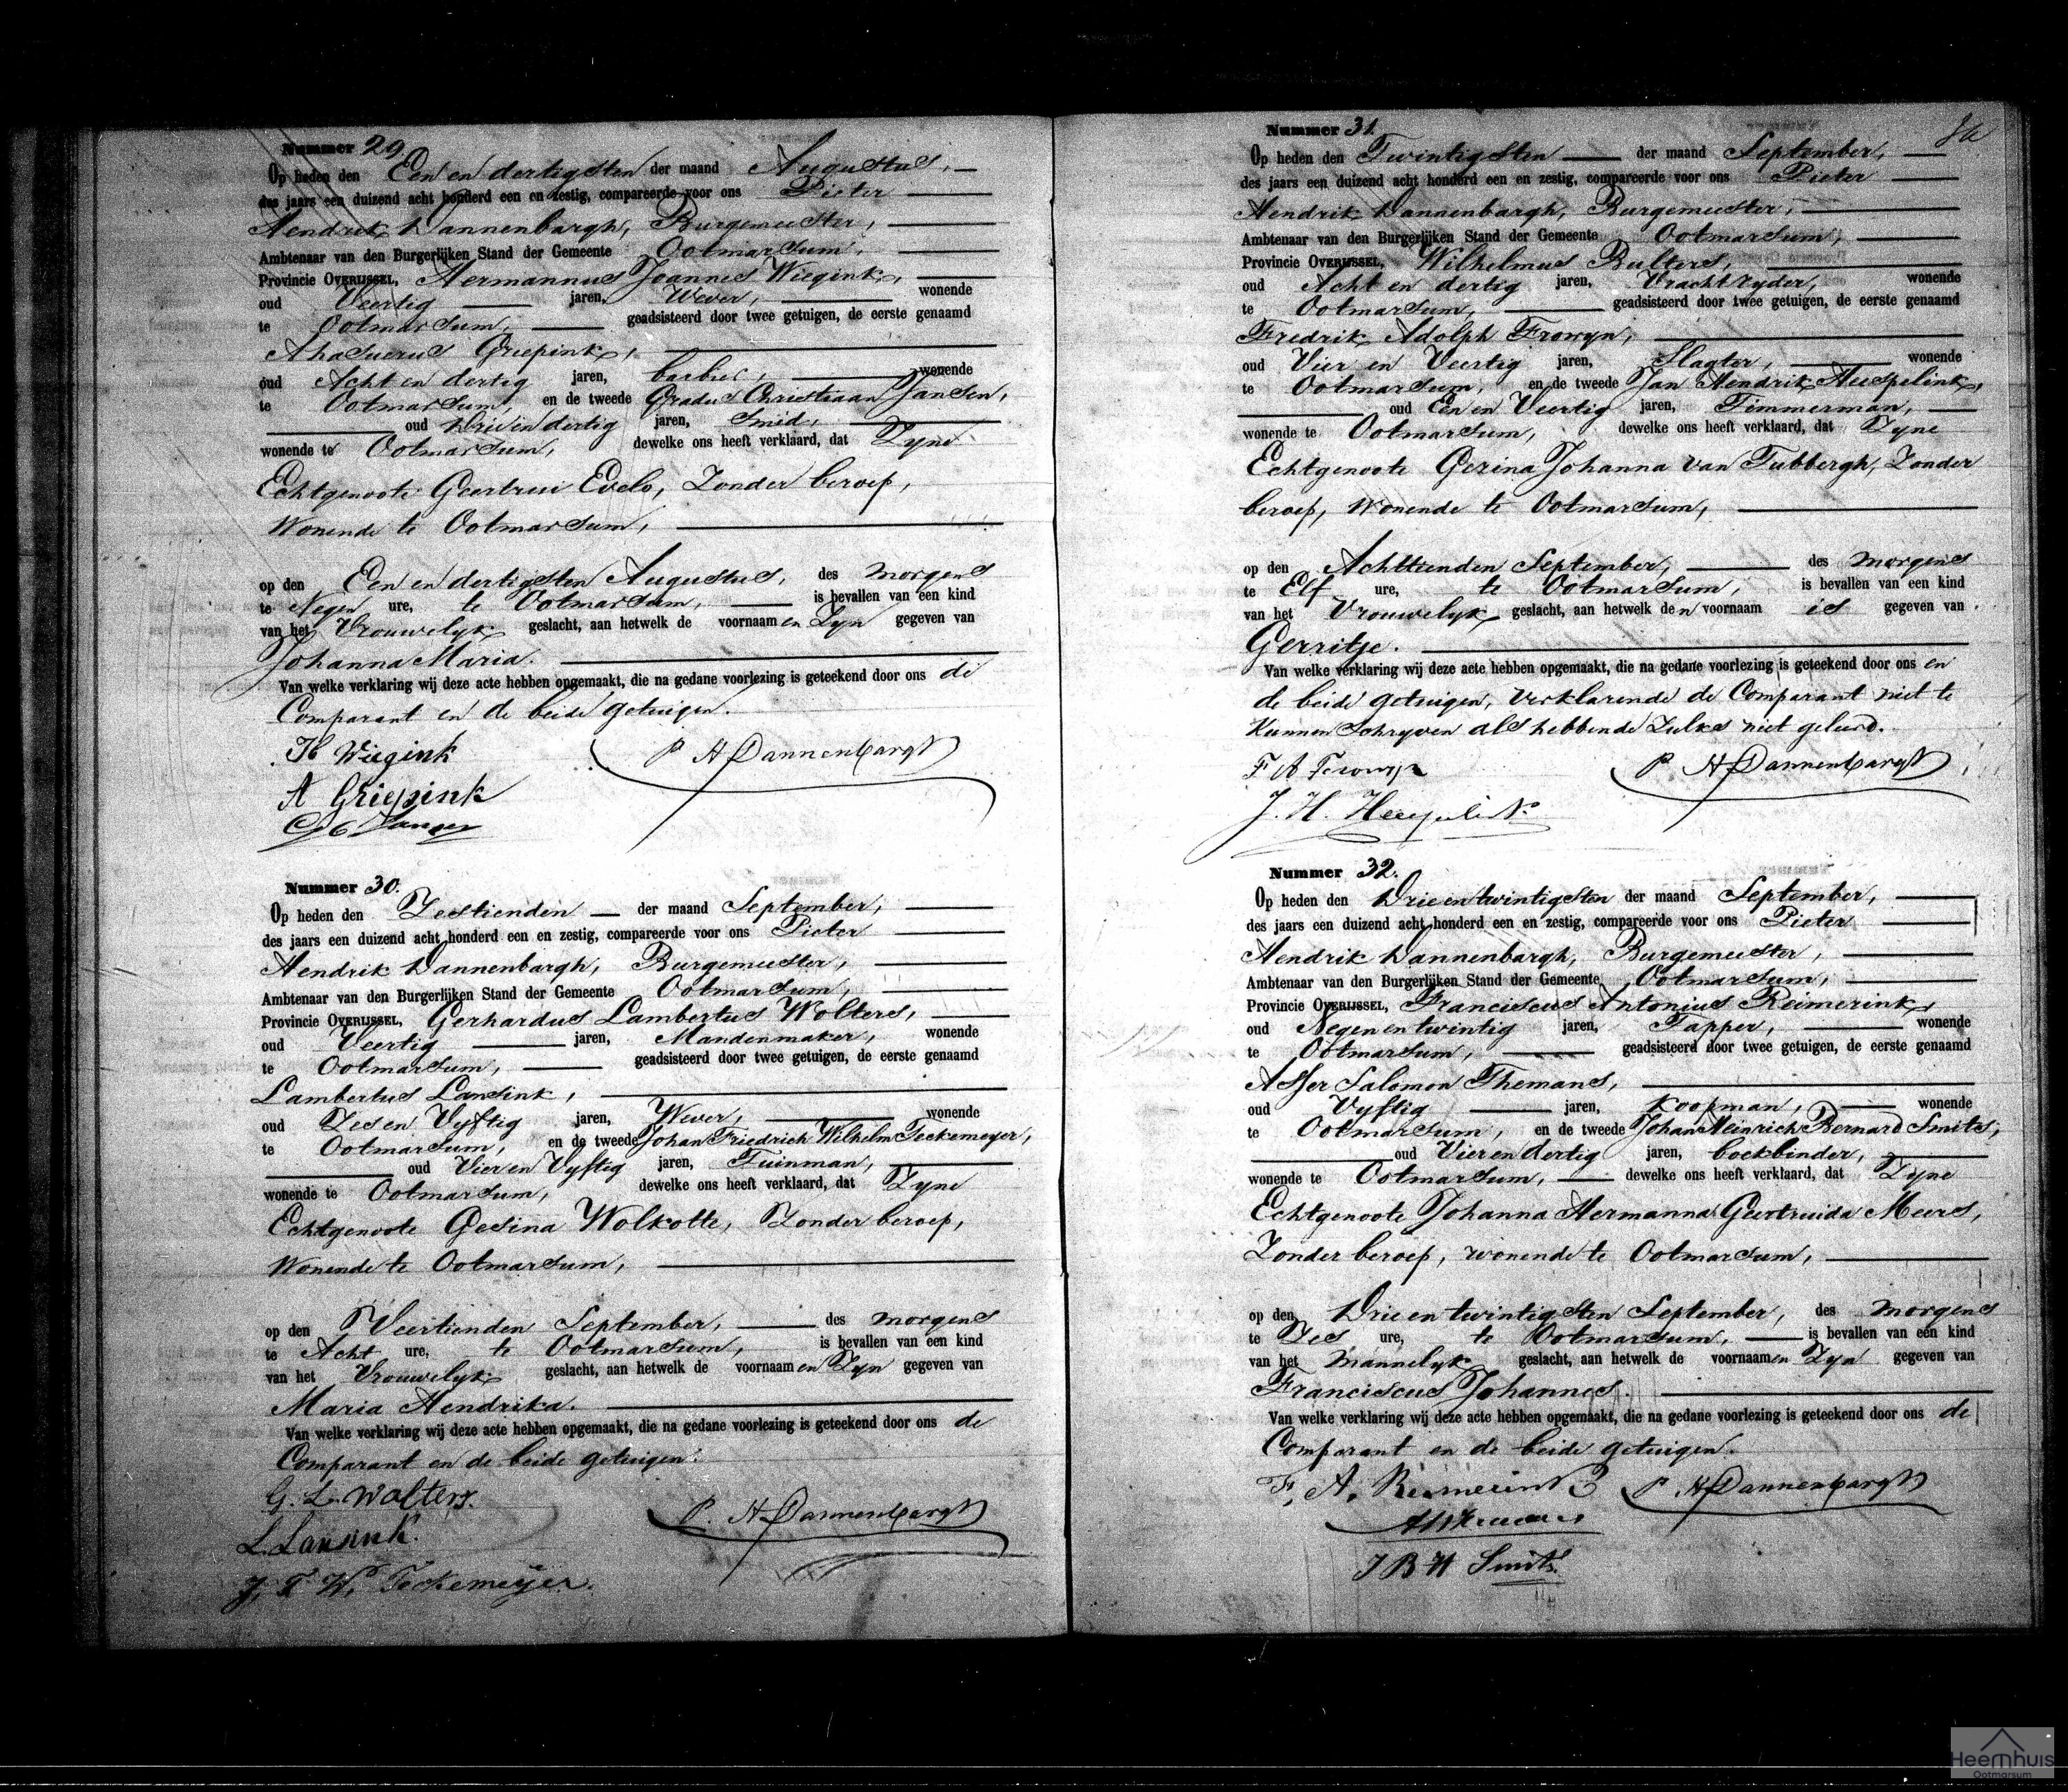 Nummer 29
Op heden den Een en dertigsten der maand Augustus,
des jaars een duizend acht honderd een en zestig, compareerde voor ons Pieter
Hendrik Dannenbargh, Burgemeester,
Ambtenaar van den Burgerlijken Stand der Gemeente Ootmarsum,
Provincie OVERIJSSEL, Hermannus Joannes Wiegink,
oud Veertig jaren, Wever, wonende
te Ootmarsum, geadsisteerd door twee getuigen, de eerste genaamd
Ahasuerus Griepink,
oud Acht en dertig jaren, barbier, wonende
te Ootmarsum, en de tweede Gradus Christiaan Jansen,
oud Drie en dertig jaren, Smid,
wonende te Ootmarsum, dewelke ons heeft verklaard, dat Zyne
Echtgenoote Geertrui Evelo, Zonder beroep,
Wonende te Ootmarsum,
op den Een en dertigsten Augustus, des morgens
te Negen ure, te Ootmarsum, is bevallen van een kind
van het Vrouwelyk geslacht, aan hetwelk de voornaamen Zyn gegeven van
Johanna Maria.
Van welke verklaring wij deze acte hebben opgemaakt, die na gedane voorlezing is geteekend door ons de
Comparant en de beide getuigen.
H Wiegink P H Dannenbargh
A Griepink
Nummer 30.
Op heden den Zestienden der maand September,
des jaars een duizend acht honderd een en zestig, compareerde voor ons Pieter
Hendrik Dannenbargh, Burgemeester,
Ambtenaar van den Burgerlijken Stand der Gemeente Ootmarsum,
Provincie OVERIJSSEL, Gerhardus Lambertus Wolters,
oud Veertig jaren, Mandenmaker, wonende
te Ootmarsum, geadsisteerd door twee getuigen, de eerste genaamd
Lambertus Lansink,
oud Zes en Vyftig jaren, Wever, wonende
te Ootmarsum, en de tweede Johan Friedrich Wilhelm Teckemeyer,
oud Vier en Vyftig jaren, Tuinman,
wonende te Ootmarsum, dewelke ons heeft verklaard, dat Zyne
Echtgenoote Gesina Wolkotte, Zonder beroep,
Wonende te Ootmarsum,
op den Veertienden September, des morgens
te Acht ure, te Ootmarsum, is bevallen van een kind
van het Vrouwelyk geslacht, aan hetwelk de voornaamen Zyn gegeven van
Maria Hendrika.
Van welke verklaring wij deze acte hebben opgemaakt, die na gedane voorlezing is geteekend door ons de
Comparant en de beide getuigen.
G. L. Wolters.
L. Lansink. P. H Dannenbargh
J. F. W. Teckemeÿer.
Nummer 31.
Op heden den Twintigsten der maand September,
des jaars een duizend acht honderd een en zestig, compareerde voor ons Pieter
Hendrik Dannenbargh, Burgemeester,
Ambtenaar van den Burgerlijken Stand der Gemeente Ootmarsum,
Provincie OVERIJSSEL, Wilhelmus Bulters,
oud Acht en dertig jaren, Vrachtryder, wonende
te Ootmarsum, geadsisteerd door twee getuigen, de eerste genaamd
Fredrik Adolph Frowyn,
oud Vier en Veertig jaren, Slagter, wonende
te Ootmarsum, en de tweede Jan Hendrik Heespelink,
oud Een en Veertig jaren, Timmerman,
wonende te Ootmarsum, dewelke ons heeft verklaard, dat Zyne
Echtgenoote Gerina Johanna van Tubbergh, Zonder
beroep, Wonende te Ootmarsum,
op den Achttienden September, des morgens
te Elf ure, te Ootmarsum, is bevallen van een kind
van het Vrouwelyk geslacht, aan hetwelk den voornaam is gegeven van
Gerritje.
Van welke verklaring wij deze acte hebben opgemaakt, die na gedane voorlezing is geteekend door ons en
de beide getuigen, Verklarende de Comparant niet te
Kunnen Schryven als hebbende Zulks niet geleerd.
F A Frowyn P H Dannenbargh
J. H. Heespelink
Nummer 32.
Op heden den Drie en twintigsten der maand September,
des jaars een duizend acht honderd een en zestig, compareerde voor ons Pieter
Hendrik Dannenbargh, Burgemeester,
Ambtenaar van den Burgerlijken Stand der Gemeente Ootmarsum,
Provincie OVERIJSSEL, Franciscus Antonius Reimerink,
oud Negen en twintig jaren, Tapper, wonende
te Ootmarsum, geadsisteerd door twee getuigen, de eerste genaamd
Asser Salomon Themans,
oud Vyftig jaren, Koopman, wonende
te Ootmarsum, en de tweede Johan Heinrich Bernard Smits,
oud Vier en dertig jaren, boekbinder,
wonende te Ootmarsum, dewelke ons heeft verklaard, dat Zyne
Echtgenoote Johanna Hermanna Geertruida Meers,
Zonder beroep, wonende te Ootmarsum,
op den Drie en twintigsten September, des morgens
te Zes ure, te Ootmarsum, is bevallen van een kind
van het Mannelyk geslacht, aan hetwelk de voornaamen Zyn gegeven van
Franciscus Johannes.
Van welke verklaring wij deze acte hebben opgemaakt, die na gedane voorlezing is geteekend door ons de
Comparant en de beide getuigen.
F. A. Reimerink P. H Dannenbargh
J B H Smits
Heemhuis
Ootmarsum